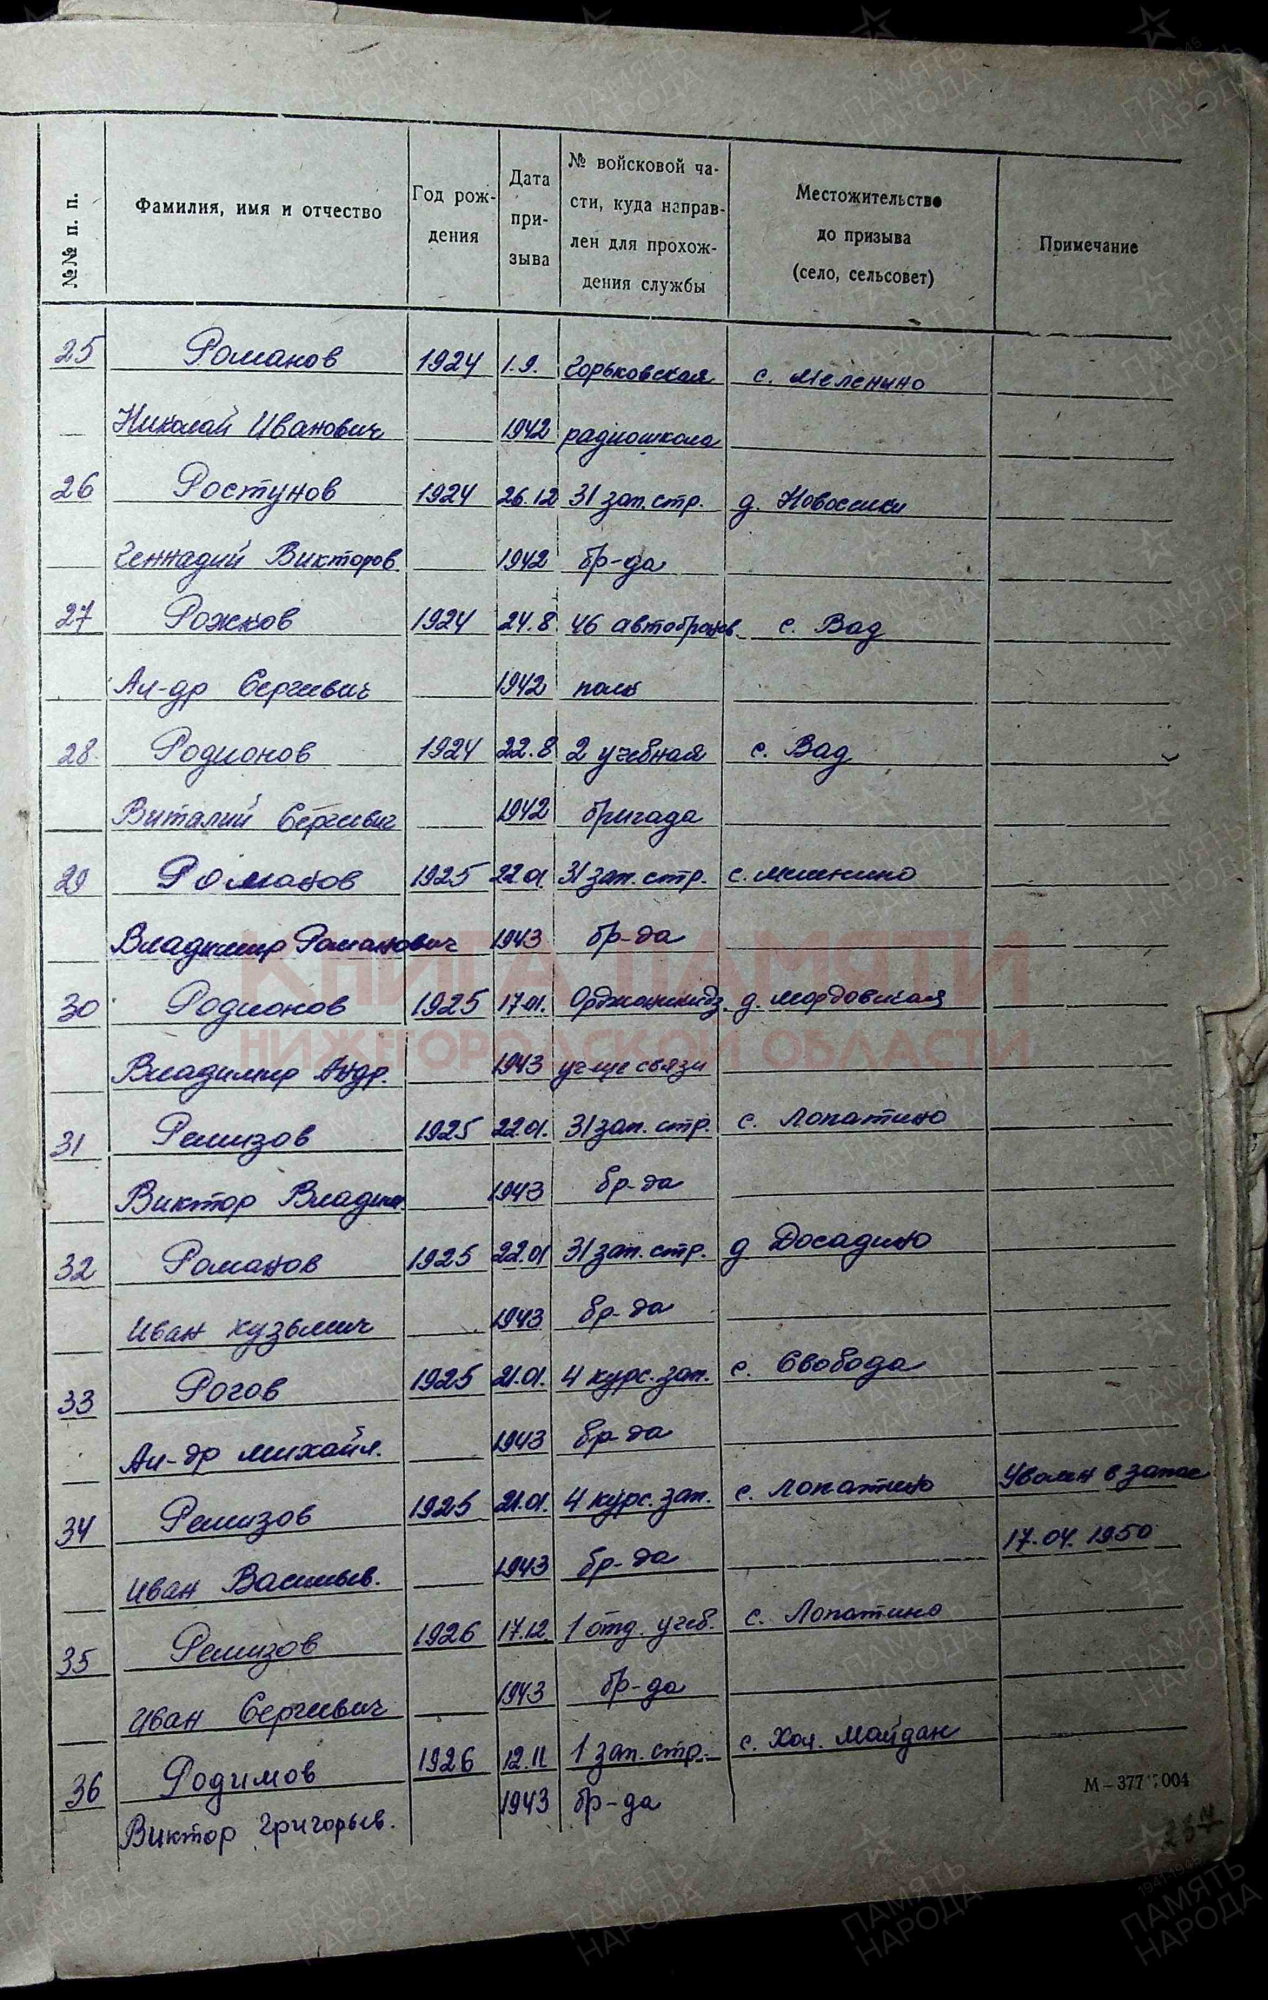 №№ п. п.
Фамилия, имя и отчество
Год рож-
дения
Дата
при-
зыва
№ войсковой ча-
сти, куда направ-
лен для прохож-
дения службы
Местожительство
до призыва
(село, сельсовет)
Примечание
25 Романов 1924 1.9. Горьковская с. Меленино
Николай Иванович 1942 радиошкола
26 Ростунов 1924 26.12 31 зап. стр. д. Новоселки
Геннадий Викторов 1942 бр-да
27 Рожков 1924 24.8 46 автобронев. с. Вад
Ал-др Сергеевич 1942 полк
28 Родионов 1924 22.8 2 учебная с. Вад
Виталий Сергеевич 1942 бригада
29 Романов 1925 22.01. 31 зап. стр. с.
Владимир Романович 1943 бр-да
30 Родионов 1925 17.01. Орджоникидз. д. Мордовская
Владимир Андр. 1943 уч-ще связи
31 Ремизов 1925 22.01. 31 зап. стр. с. Лопатино
Виктор Владим 1943 бр-да
32 Романов 1925 22.01 31 зап. стр. д Досадино
Иван Кузьмич 1943 бр-да
33 Рогов 1925 21.01. 4 курс. зап. с. Свобода
Ал-др Михайл. 1943 бр-да
34 Ремизов 1925 21.01. 4 курс. зап. с. Лопатино Уволен в запас
Иван Васильев. 1943 бр-да 17.04.1950
35 Ремизов 1926 17.12. 1 отд. учеб. с. Лопатино
Иван Сергеевич 1943 бр-да
36 Родимов 1926 12.11 1 зап. стр. с. Хол. Майдан
Виктор Григорьев. 1943 бр-да
КНИГА ПАМЯТИ
НИЖЕГОРОДСКОЙ ОБЛАСТИ
ПАМЯТЬ
НАРОДА